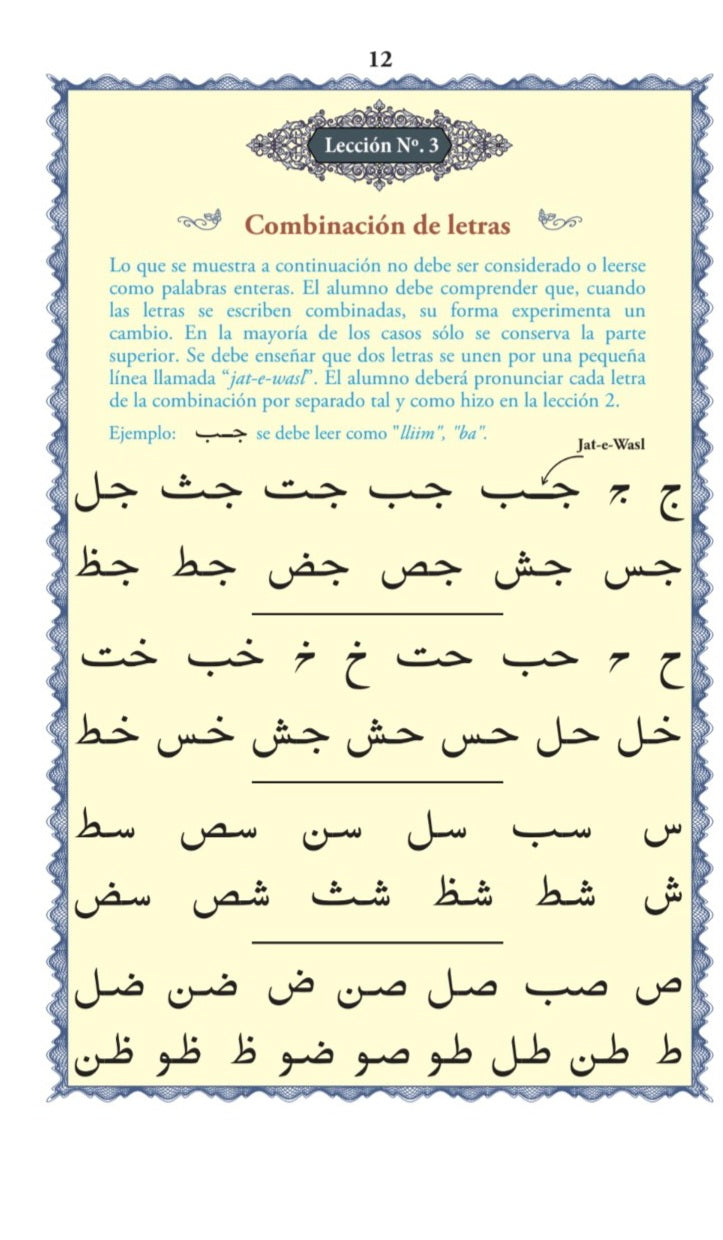 12
Lección Nº. 3
Combinación de letras
Lo que se muestra a continuación no debe ser considerado o leerse
como palabras enteras. El alumno debe comprender que, cuando
las letras se escriben combinadas, su forma experimenta un
cambio. En la mayoría de los casos sólo se conserva la parte
superior. Se debe enseñar que dos letras se unen por una pequeña
línea llamada “jat-e-wasl”. El alumno deberá pronunciar cada letra
de la combinación por separado tal y como hizo en la lección 2.
Ejemplo: جـب se debe leer como "lliim", "ba".
Jat-e-Wasl
ج جـ جـب جب جت جث جل
جس جش جص جض جط جظ
ح حـ حب حت خ خـ خب خت
خل حل حس حش جش خس خط
س سب سل سن سص سط
ش شط شظ شث شص سض
ص صب صل صن ض ضن ضل
ط طن طل طو صو ضو ظ ظو ظن